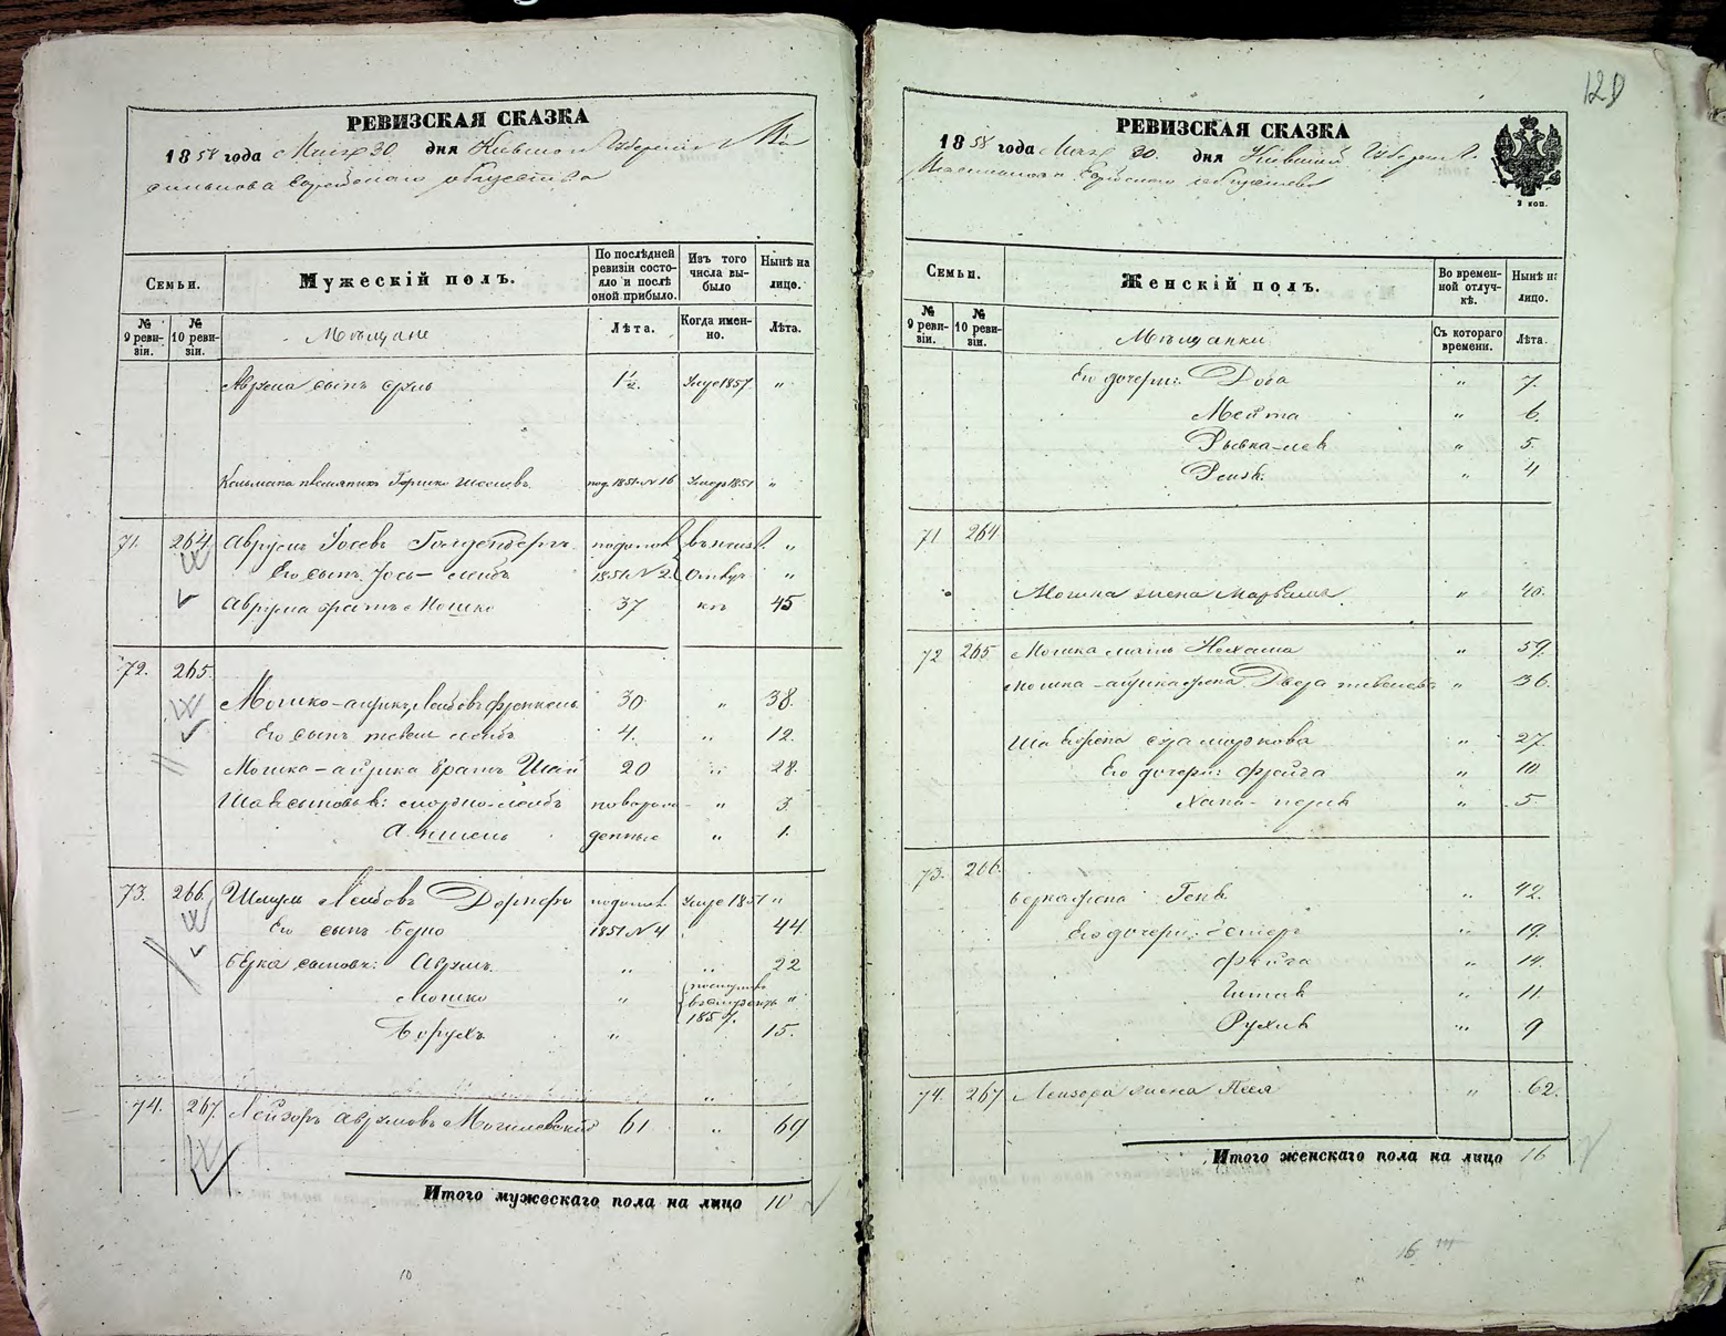 РЕВИЗСКАЯ СКАЗКА
1858 года Мая 30 дня Кіевской Губерніи г. Ва
силькова Еврейскаго общества
Семьи.
Мужескій полъ.
По послѣдней ревизіи состояло и послѣ оной прибыло.
Изъ того числа выбыло
Нынѣ на лицо.
№ 9 ревизіи.
№ 10 ревизіи.
Мѣщане
Лѣта.
Когда именно.
Лѣта.
Аврума сынъ Сруль 1½. Умре 1857 "
Кельмана племянникъ Гершко 1851 № 16 1851 "
71. 264. Аврумъ Іосевъ Гольденбергъ "
Его сынъ Іось-Лейбъ 1851 № 2. "
Аврума братъ Мошко 37 45
72. 265.
Мошко-Айзикъ Лейбовъ Френкель 30 " 38.
Его сынъ Тевель Лейбъ 4. " 12.
Мошка-Айзика братъ Шая 20 " 28.
Шаи сыновья: Мордко-Лейбъ новорож- " 3
Аншель денные " 1.
73. 266. Шмуль Лейбовъ Умре 1851 "
Его сынъ Берко 1851 № 4 44
Берка сыновья: Аврумъ " " 22
Мошко " 1857. "
Борухъ " 15.
74. 267. Лейзоръ Аврумовъ Могилевскій 61 " 69
Итого мужескаго пола на лицо 10
10
120
РЕВИЗСКАЯ СКАЗКА
1858 года Мая 30. дня Кіевской Губерніи г.
Василькова Еврейскаго общества
2 коп.
Семьи.
Женскій полъ.
Во временной отлучкѣ.
Нынѣ на лицо.
№ 9 ревизіи.
№ 10 ревизіи.
Мѣщанки
Съ котораго времени.
Лѣта.
Его дочери: Доба " 7.
Мейта " 6.
Рывка-Лея " 5.
Рейзя. " 4
71 264
Мошка жена Марьямъ " 40.
72 265 Мошка мать Нехама " 59.
Мошка-Айзика жена Двера Тевелева " 36.
Шаи жена Сура Мордкова " 27.
Его дочери: Фрейда " 10
Хана-Перля " 5.
73. 266.
Берка жена Геня " 42.
Его дочери: Эстеръ " 19.
Фейга " 14.
" 11.
Рухля " 9
74. 267 Лейзора жена Песя " 62.
Итого женскаго пола на лицо 16
16